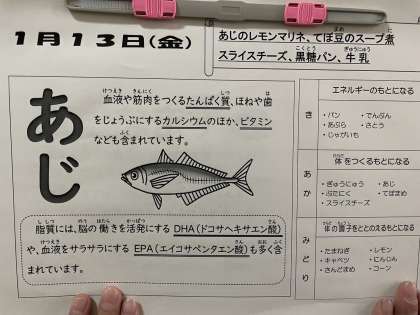 1月13日(金)
あじのレモンマリネ、てぼ豆のスープ煮
スライスチーズ、黒糖パン、牛乳
あじ
血液や筋肉をつくるたんぱく質、ほねや歯
をじょうぶにするカルシウムのほか、ビタミン
なども含まれています。
脂質には、脳の働きを活発にするDHA(ドコサヘキサエン酸)
や、血液をサラサラにするEPA(エイコサペンタエン酸)も多く含
まれています。
き
エネルギーのもとになる
・パン ・でんぷん
・あぶら ・さとう
・じゃがいも
あか
体をつくるもとになる
・ぎゅうにゅう ・あじ
・ぶたにく ・てぼまめ
・スライスチーズ
みどり
体の調子をととのえるもとになる
・たまねぎ ・レモン
・キャベツ ・にんじん
・さんどまめ ・コーン